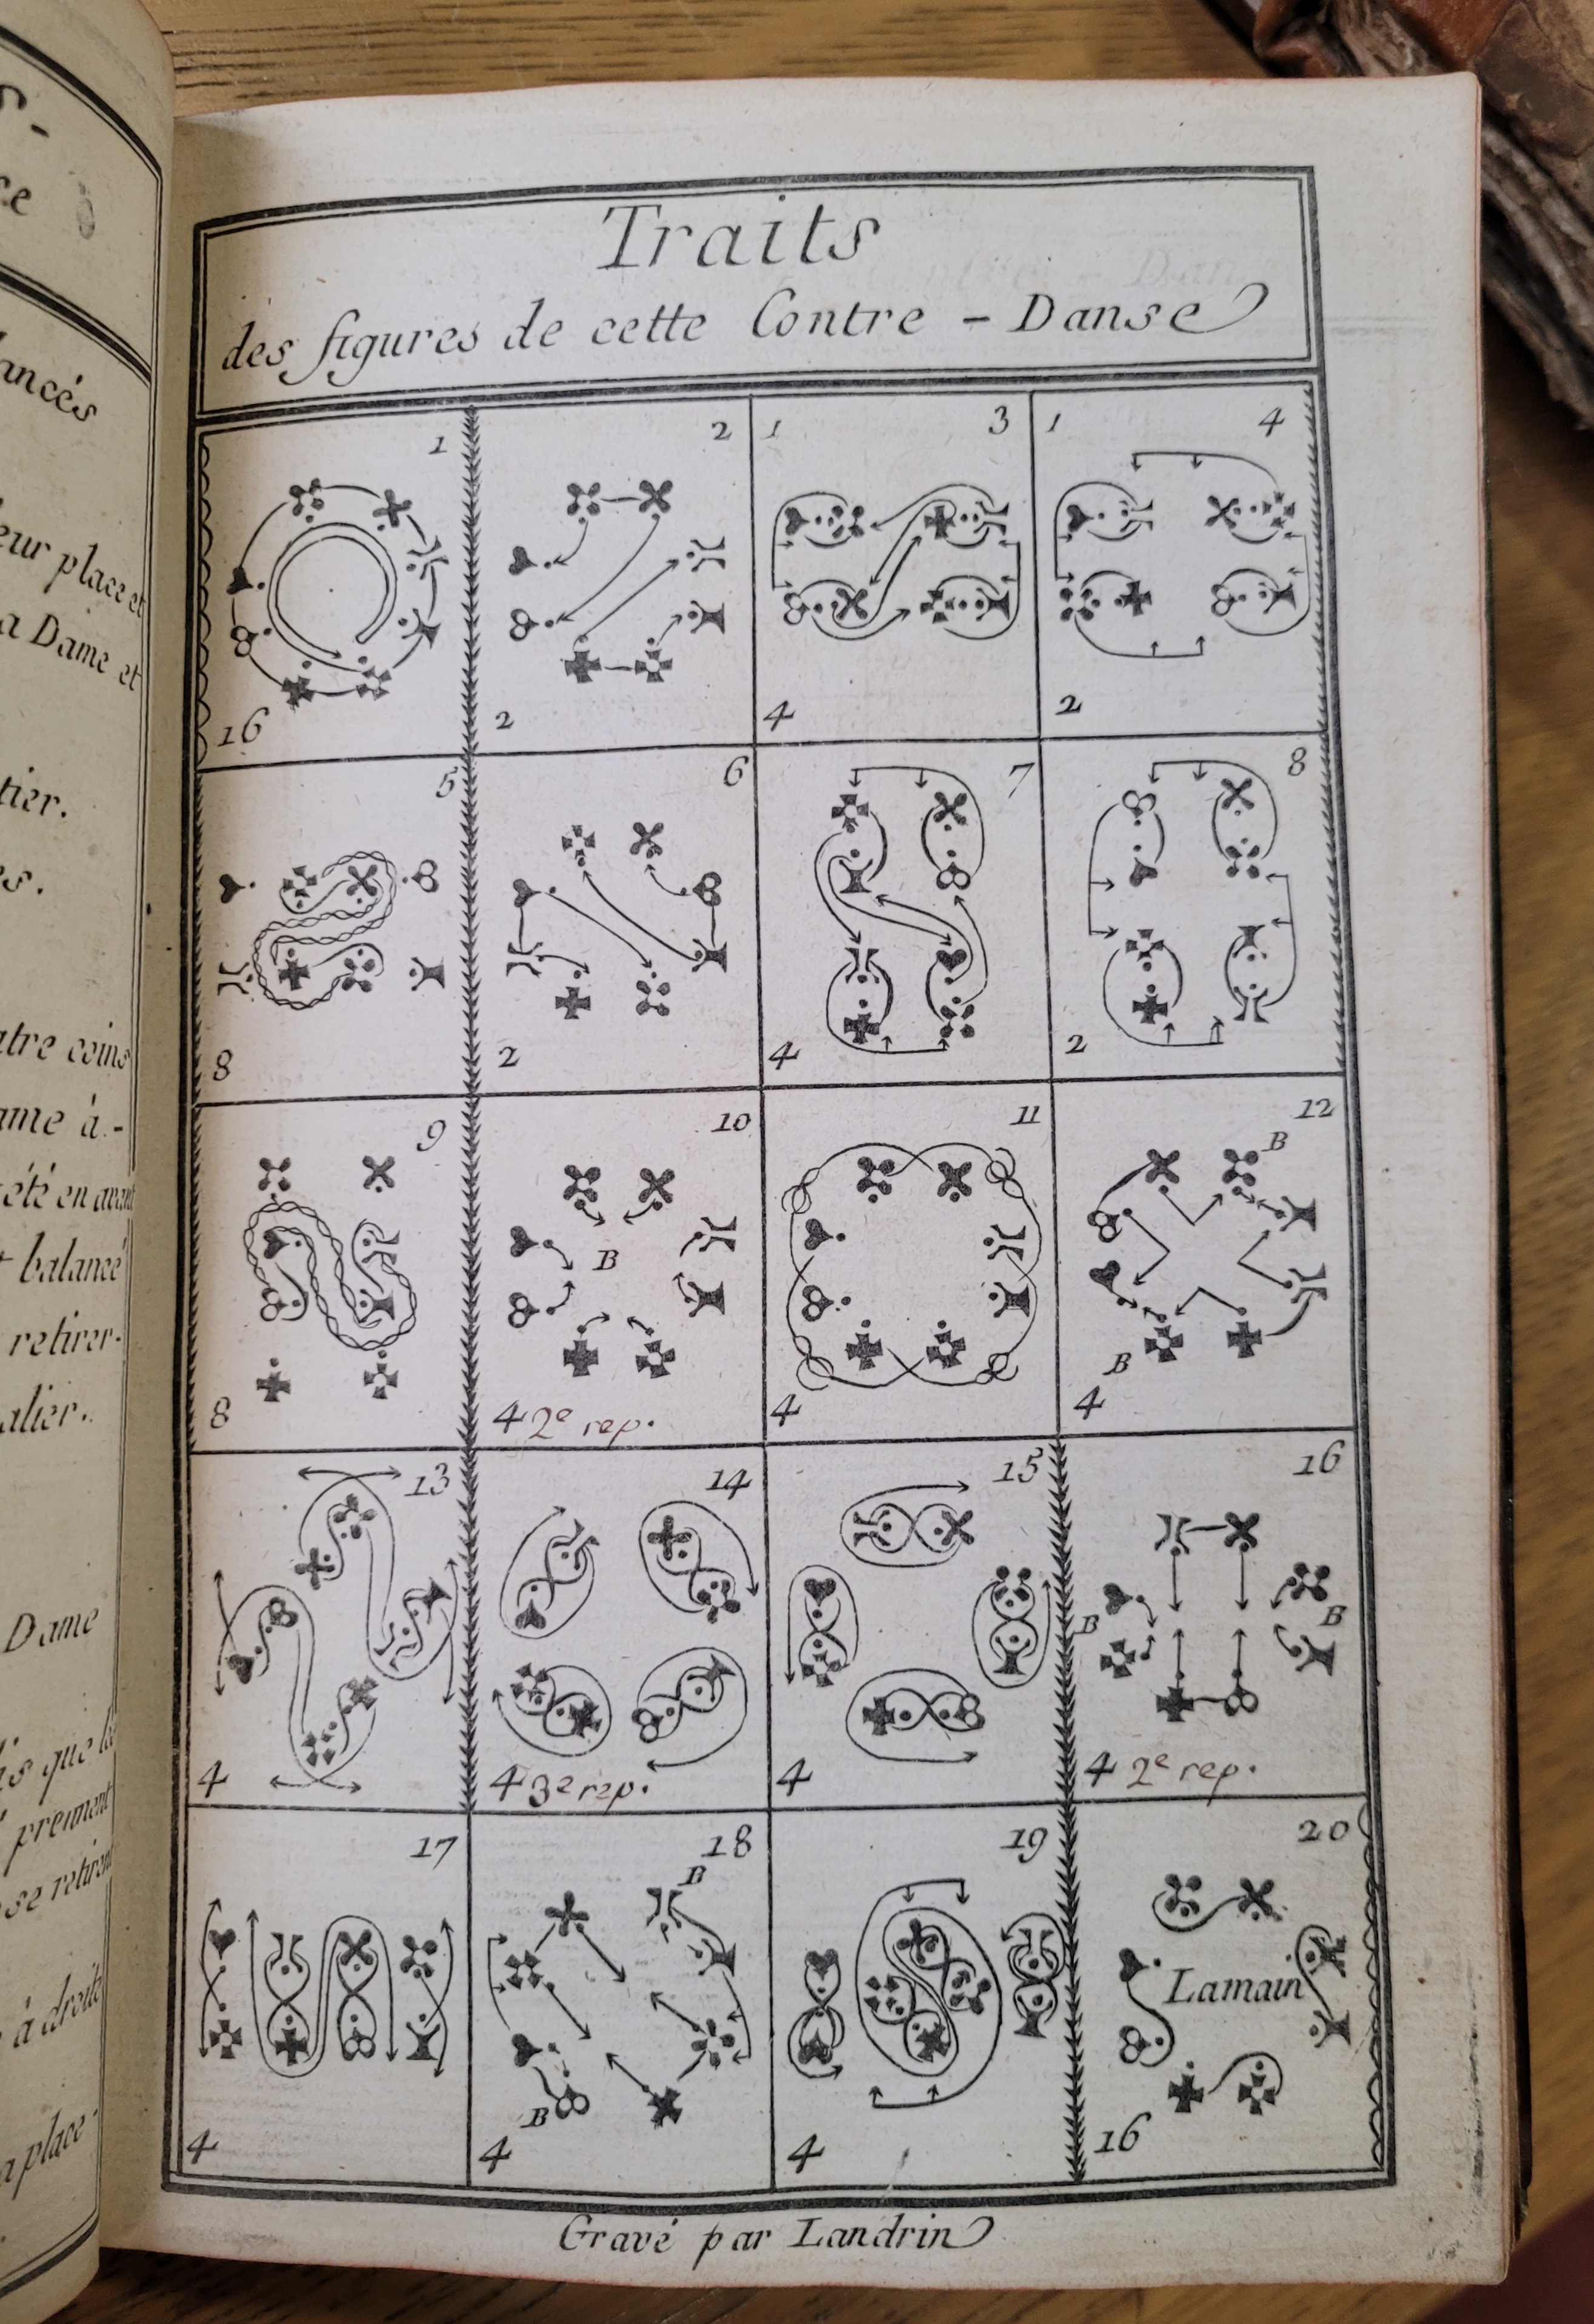 Traits
des figures de cette Contre - Danse
1
2
1 3
1 4
16
2
4
2
5
6
7
8
8
2
4
2
9
10
11
12
B
B
B
8
4 2e rep.
4
4
13
14
15
16
B
B
4
4 3e rep.
4
4 2e rep.
17
18
19
20
B
Lamain
B
4
4
4
16
Gravé par Landrin
ancés
leur place et
a Dame et
tier.
es.
atre coins
ame à -
été en avant
t balancé
retirer.
alier.
Dame
is que la
prennent
se retirent
à droite
a place